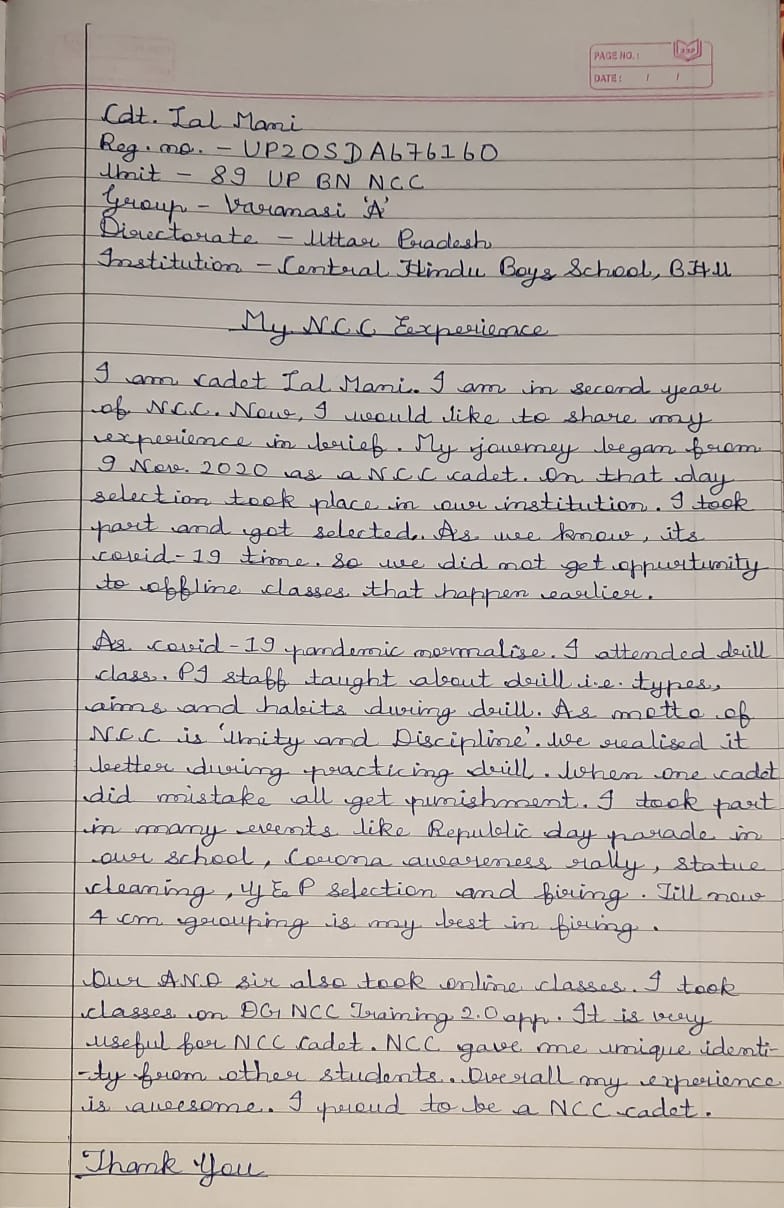 PAGE NO.:
DATE: / /
Cdt. Lal Mani
Reg. no. - UP20SDA676160
Unit - 89 UP BN NCC
Group - Varanasi 'A'
Directorate - Uttar Pradesh
Institution - Central Hindu Boys School, BHU
My N.C.C Experience
I am cadet Lal Mani. I am in second year
of N.C.C. Now, I would like to share my
experience in brief. My journey began from
9 Nov. 2020 as a N.C.C cadet. On that day
selection took place in our institution. I took
part and got selected. As we know, its
covid-19 time. So we did not get oppurtunity
to offline classes that happen earlier.
As covid-19 pandemic normalise. I attended drill
class. PI staff taught about drill i.e. types,
aims and habits during drill. As motto of
N.C.C is 'Unity and Discipline'. We realised it
better during practicing drill. When one cadet
did mistake all get punishment. I took part
in many events like Republic day parade in
our school, Corona awareness rally, statue
cleaning, YEP selection and firing. Till now
4 cm grouping is my best in firing.
Our A.N.O sir also took online classes. I took
classes on DG NCC Training 2.0 app. It is very
useful for NCC cadet. NCC gave me unique identi-
-ty from other students. Overall my experience
is awesome. I proud to be a NCC cadet.
Thank You